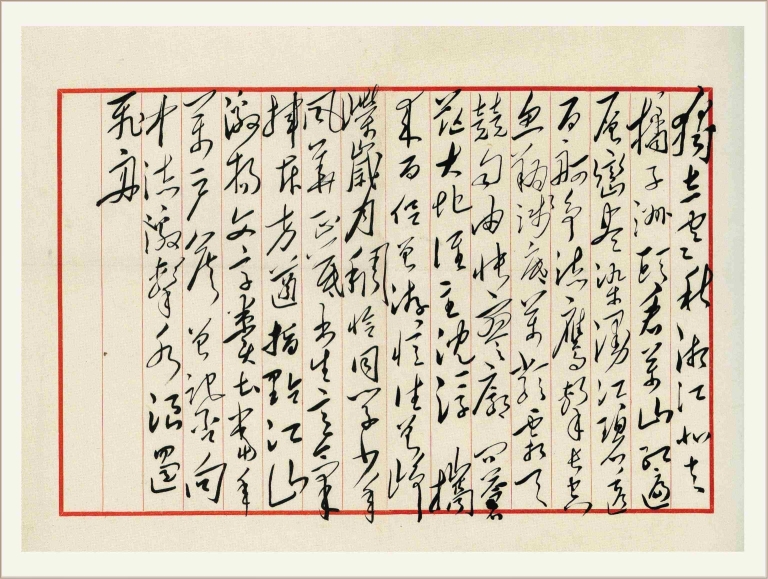 獨立寒秋湘江北去
橘子洲頭看萬山紅遍
層巒盡染漫江碧透
百舸爭流鷹擊長空
魚翔淺底萬類霜天
競自由悵寥廓問蒼
茫大地誰主沈浮 攜
來百侶曾游憶往昔崢
嶸歲月稠恰同學少年
風華正茂書生意氣
揮斥方遒指點江山
激揚文字糞土當年
萬戶侯曾記否向
中流激擊水浪遏
飛舟